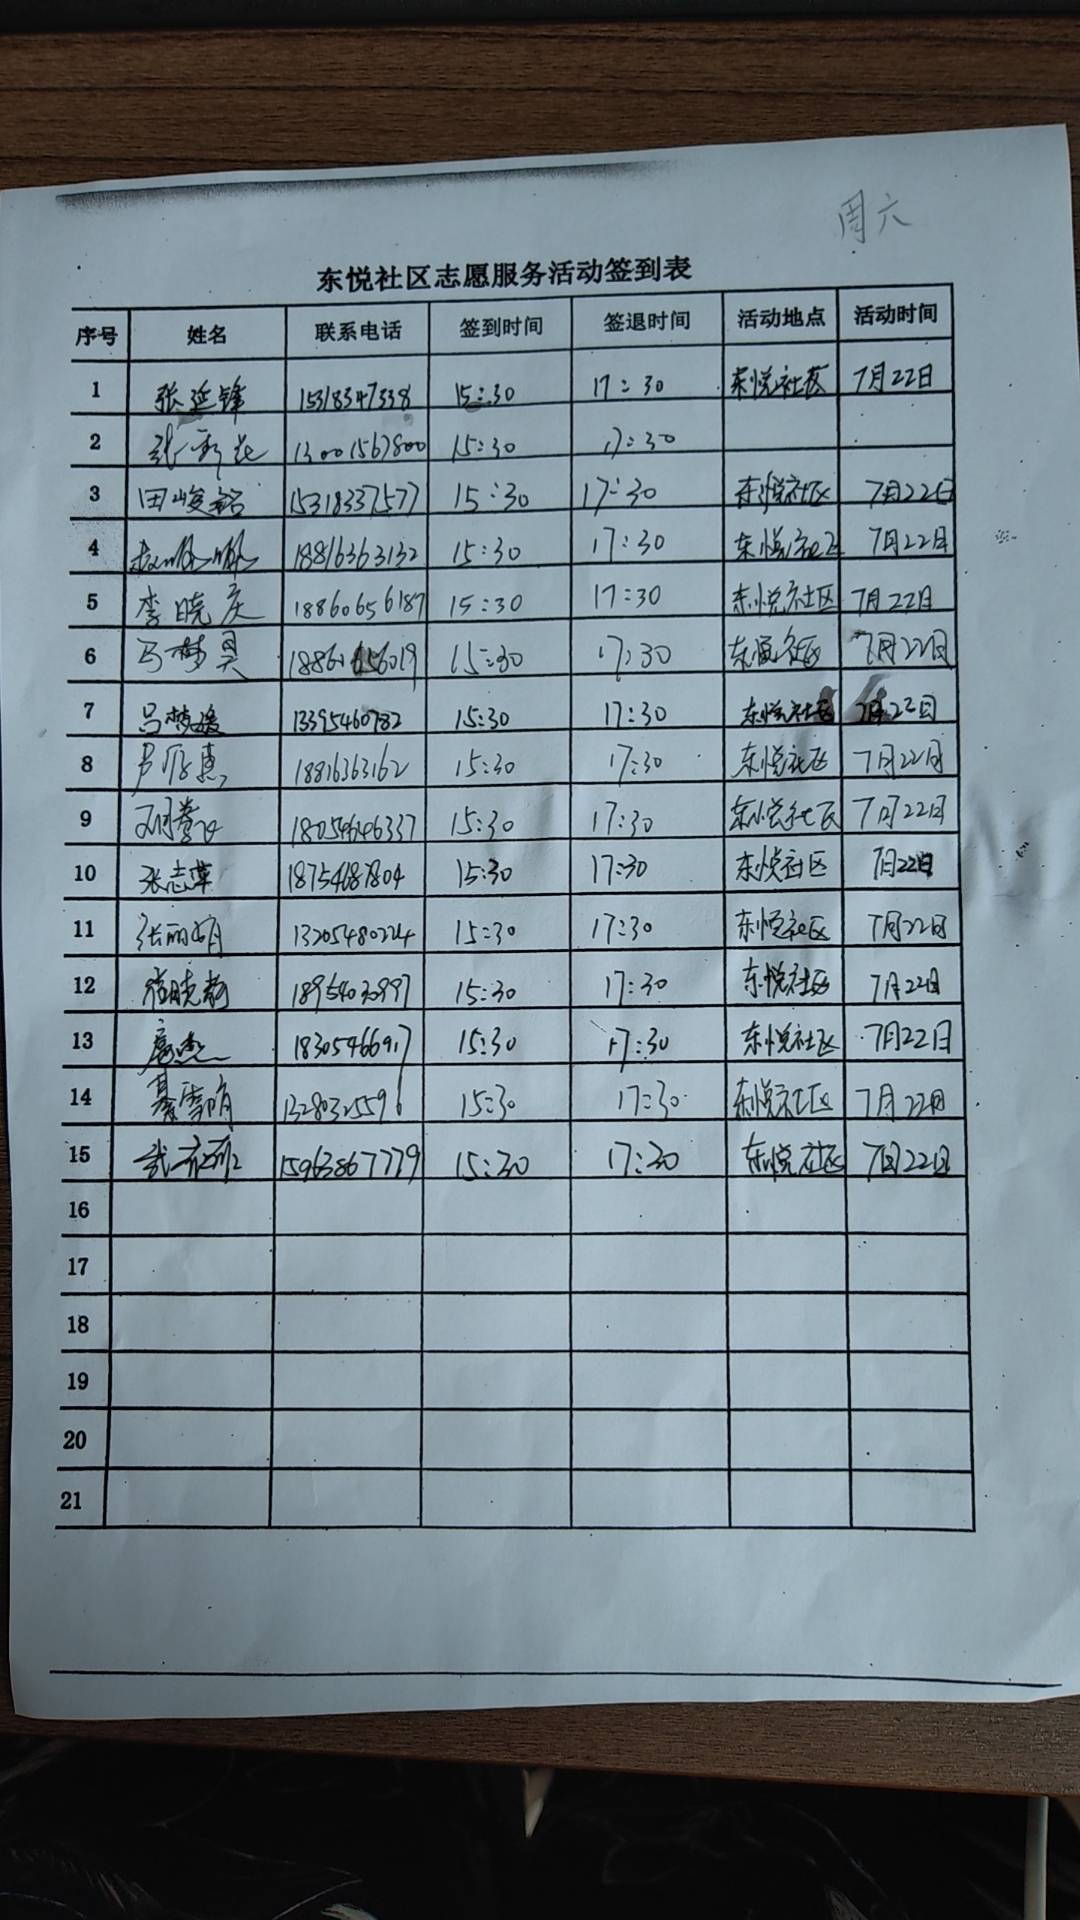 周六
东悦社区志愿服务活动签到表
序号 姓名 联系电话 签到时间 签退时间 活动地点 活动时间
1 张延锋 15318347338 15:30 17:30 东悦社区 7月22日
2 13001567800 15:30 17:30
3 田峻铭 15318337577 15:30 17:30 东悦社区 7月22日
4 18816363132 15:30 17:30 东悦社区 7月22日
5 李晓庆 18860656187 15:30 17:30 东悦社区 7月22日
6 马梦昊 15:30 17:30 东悦社区 7月22日
7 吕梦媛 13395460782 15:30 17:30 东悦社区
8 18816363162 15:30 17:30 东悦社区 7月22日
9 18054646337 15:30 17:30 东悦社区 7月22日
10 张志萍 18754687804 15:30 17:30 东悦社区 7月22日
11 张丽娟 13205480224 15:30 17:30 东悦社区 7月22日
12 18954030997 15:30 17:30 东悦社区 7月22日
13 18305466917 15:30 17:30 东悦社区 7月22日
14 綦雪娟 13280325596 15:30 17:30 东悦社区 7月22日
15 15963867779 15:30 17:30 东悦社区 7月22日
16
17
18
19
20
21